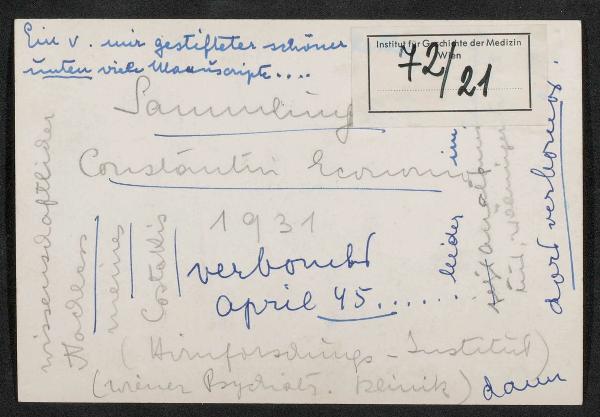 Ein v. mir gestifteter schöner
unten viele Manuscripte....
Institut für Geschichte der Medizin
Wien
72/21
Sammlung
Constantin Economo
1931
verbombt
April 45......
leider
im
dort verbombt.
wissenschaftlicher
Nachlass
meines
(Hirnforschungs-Institut)
(Wiener Psychiatr. Klinik)
dann